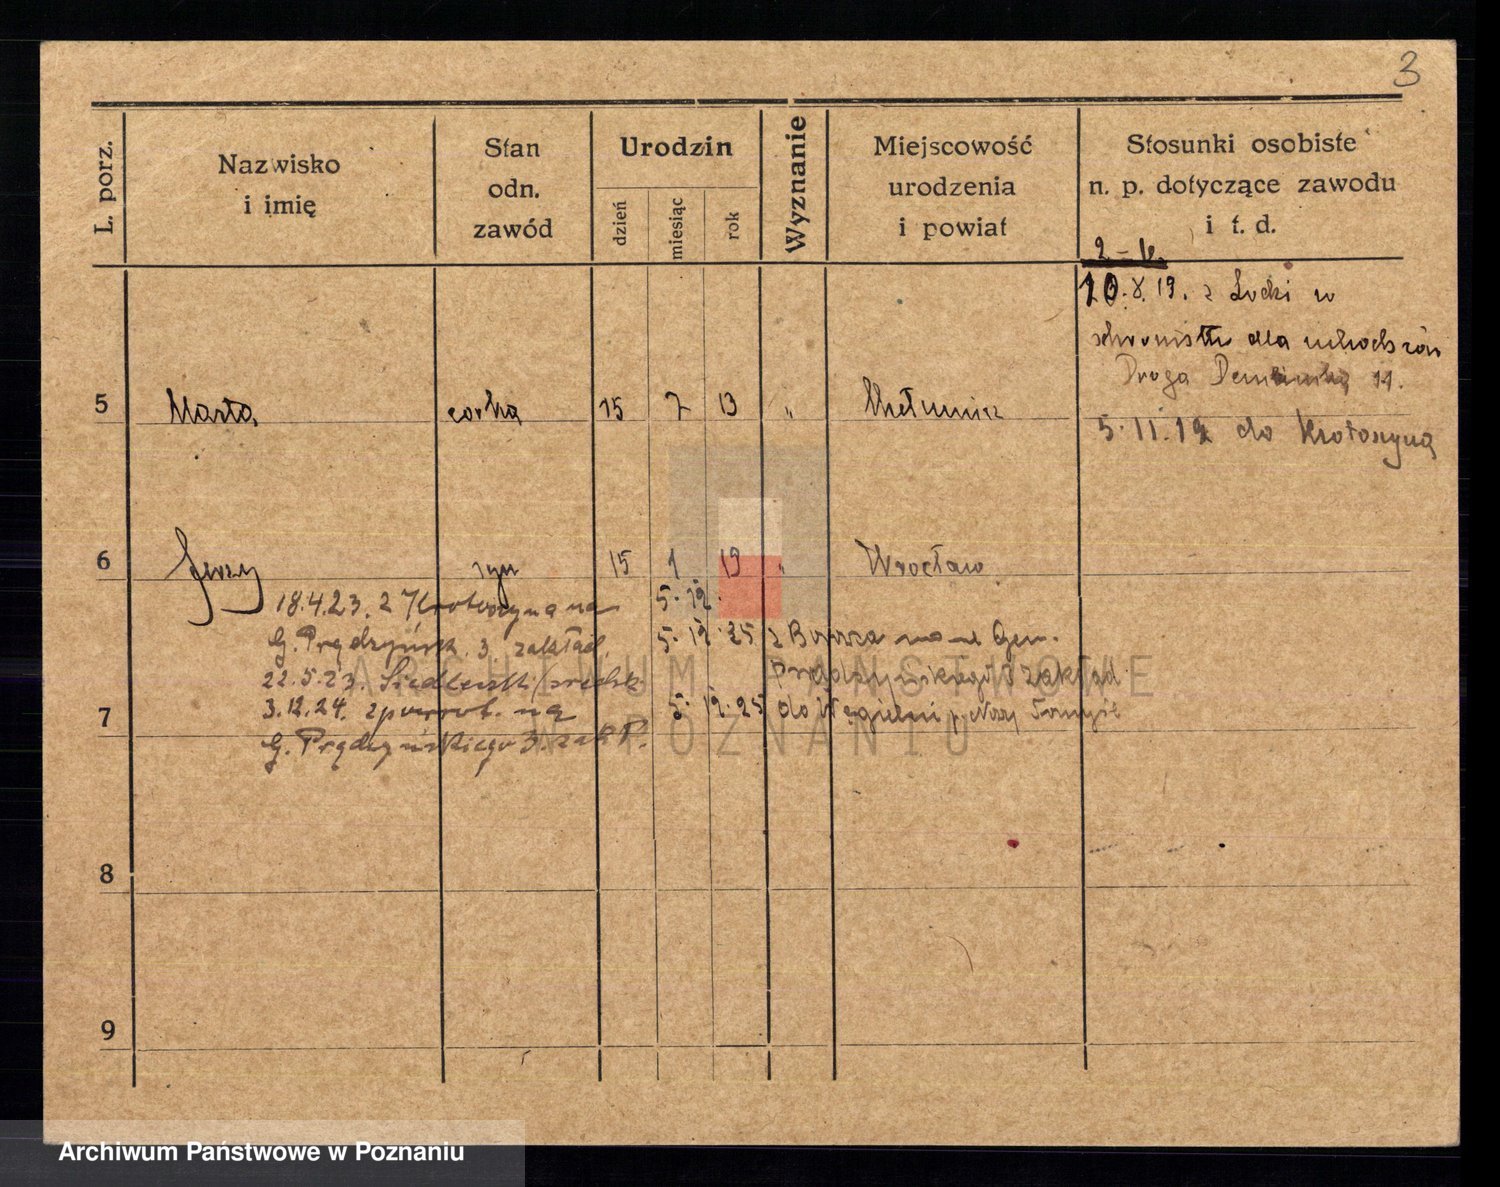 3
L. porz.
Nazwisko
i imię
Stan
odn.
zawód
Urodzin
dzień
miesiąc
rok
Wyznanie
Miejscowość
urodzenia
i powiat
Stosunki osobiste
n. p. dotyczące zawodu
i t. d.
z w
dla
Droga 11.
5 Marta córka 15 7 13 "
5.11.19 do Krotoszyna
6 Jerzy syn 15 1 19 " Wrocław
18.4.23. z Krotoszyna na
5.12.
G. Prądzyńsk. 3. zakład.
5.12.25 z na Gen.
22.5.23.
Prądzyńskiego 3 zakład
3.12.24. na
5.12.25 do p. Nowy Tomyśl
7
G. Prądzyńskiego 3.
8
9
ARCHIWUM PAŃSTWOWE
W POZNANIU
Archiwum Państwowe w Poznaniu